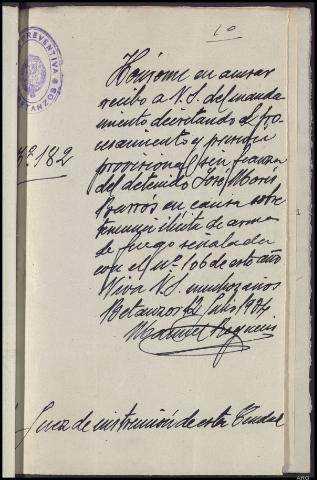 10
PREVENTIVA
BETANZOS
Nº 182
Hónrome en acusar
recibo a V.S. del manda-
miento decretando el pro-
cesamiento y prisión
provisional sin fianza
del detenido José
Barrós en causa sobre
tenencia ilícita de armas
de fuego señalada
con el nº 106 de este año
Viva V.S. muchos años
Betanzos 12 Julio 1934
Manuel
Juez de instrucción de esta Ciudad